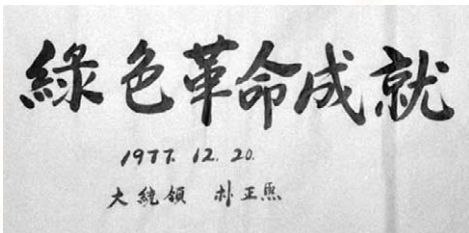 綠色革命成就
1977. 12. 20.
大統領 朴正熙